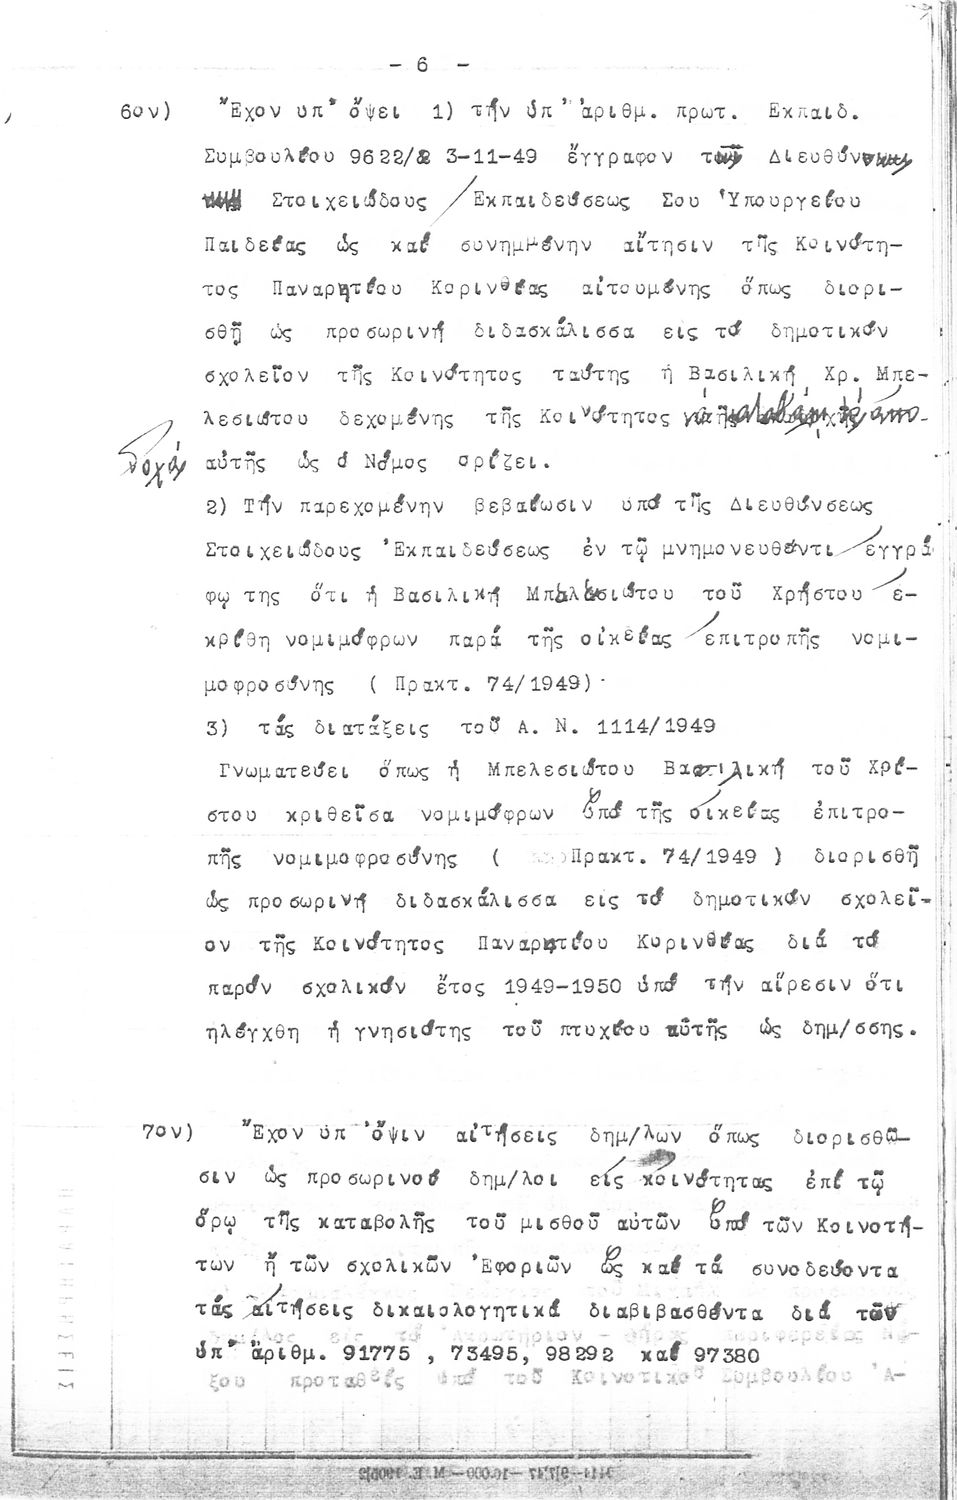 - 6 -
6ον) Ἔχον υπ' ὄψει 1) τήν ὑπ' ἀριθμ. πρωτ. Εκπαιδ.
Συμβουλίου 9622/& 3-11-49 ἔγγραφον Διευθύν
Στοιχειώδους Ἐκπαιδεύσεως Σου Ὑπουργείου
Παιδείας ὡς καί συνημμένην αἴτησιν τῆς Κοινότη-
τος Παναρητίου Κορινθίας αἰτουμένης ὅπως διορι-
σθῇ ὡς προσωρινή διδασκάλισσα εις τό δημοτικόν
σχολεῖον τῆς Κοινότητος ταύτης ἡ Βασιλική Χρ. Μπε-
λεσιώτου δεχομένης τῆς Κοινότητος
αὐτῆς ὡς ὁ Νόμος ορίζει.
2) Τήν παρεχομένην βεβαίωσιν υπό τῆς Διευθύνσεως
Στοιχειώδους Ἐκπαιδεύσεως ἐν τῷ μνημονευθέντι εγγρά
φῳ της ὅτι ἡ Βασιλική Μπελεσιώτου τοῦ Χρήστου ε-
κρίθη νομιμόφρων παρά τῆς οἰκείας επιτροπῆς νομι-
μοφροσύνης ( Πρακτ. 74/1949)
3) τάς διατάξεις τοῦ Α. Ν. 1114/1949
Γνωματεύει ὅπως ἡ Μπελεσιώτου Βασιλική τοῦ Χρί-
στου κριθεῖσα νομιμόφρων ὑπό τῆς οἰκείας ἐπιτρο-
πῆς νομιμοφροσύνης ( Πρακτ. 74/1949 ) διορισθῇ
ὡς προσωρινή διδασκάλισσα εις τό δημοτικόν σχολεῖ-
ον τῆς Κοινότητος Παναρητίου Κυρινθίας διά τό
παρόν σχολικόν ἔτος 1949-1950 ὑπό τήν αἵρεσιν ὅτι
ηλέγχθη ἡ γνησιότης τοῦ πτυχίου αὐτῆς ὡς δημ/σσης.
7ον) Ἔχον ὑπ' ὄψιν αἰτήσεις δημ/λων ὅπως διορισθῶ-
σιν ὡς προσωρινοί δημ/λοι εἰς κοινότητας ἐπί τῷ
ὅρῳ τῆς καταβολῆς τοῦ μισθοῦ αὐτῶν ὑπό τῶν Κοινοτή-
των ἤ τῶν σχολικῶν Ἐφοριῶν ὡς καί τά συνοδεύοντα
τάς αἰτήσεις δικαιολογητικά διαβιβασθέντα διά τῶν
ὑπ' ἄριθμ. 91775 , 73495, 98292 καί 97380
ξου προταθείς ὑπό τοῦ Κοινοτικοῦ Συμβουλίου Ἀ-